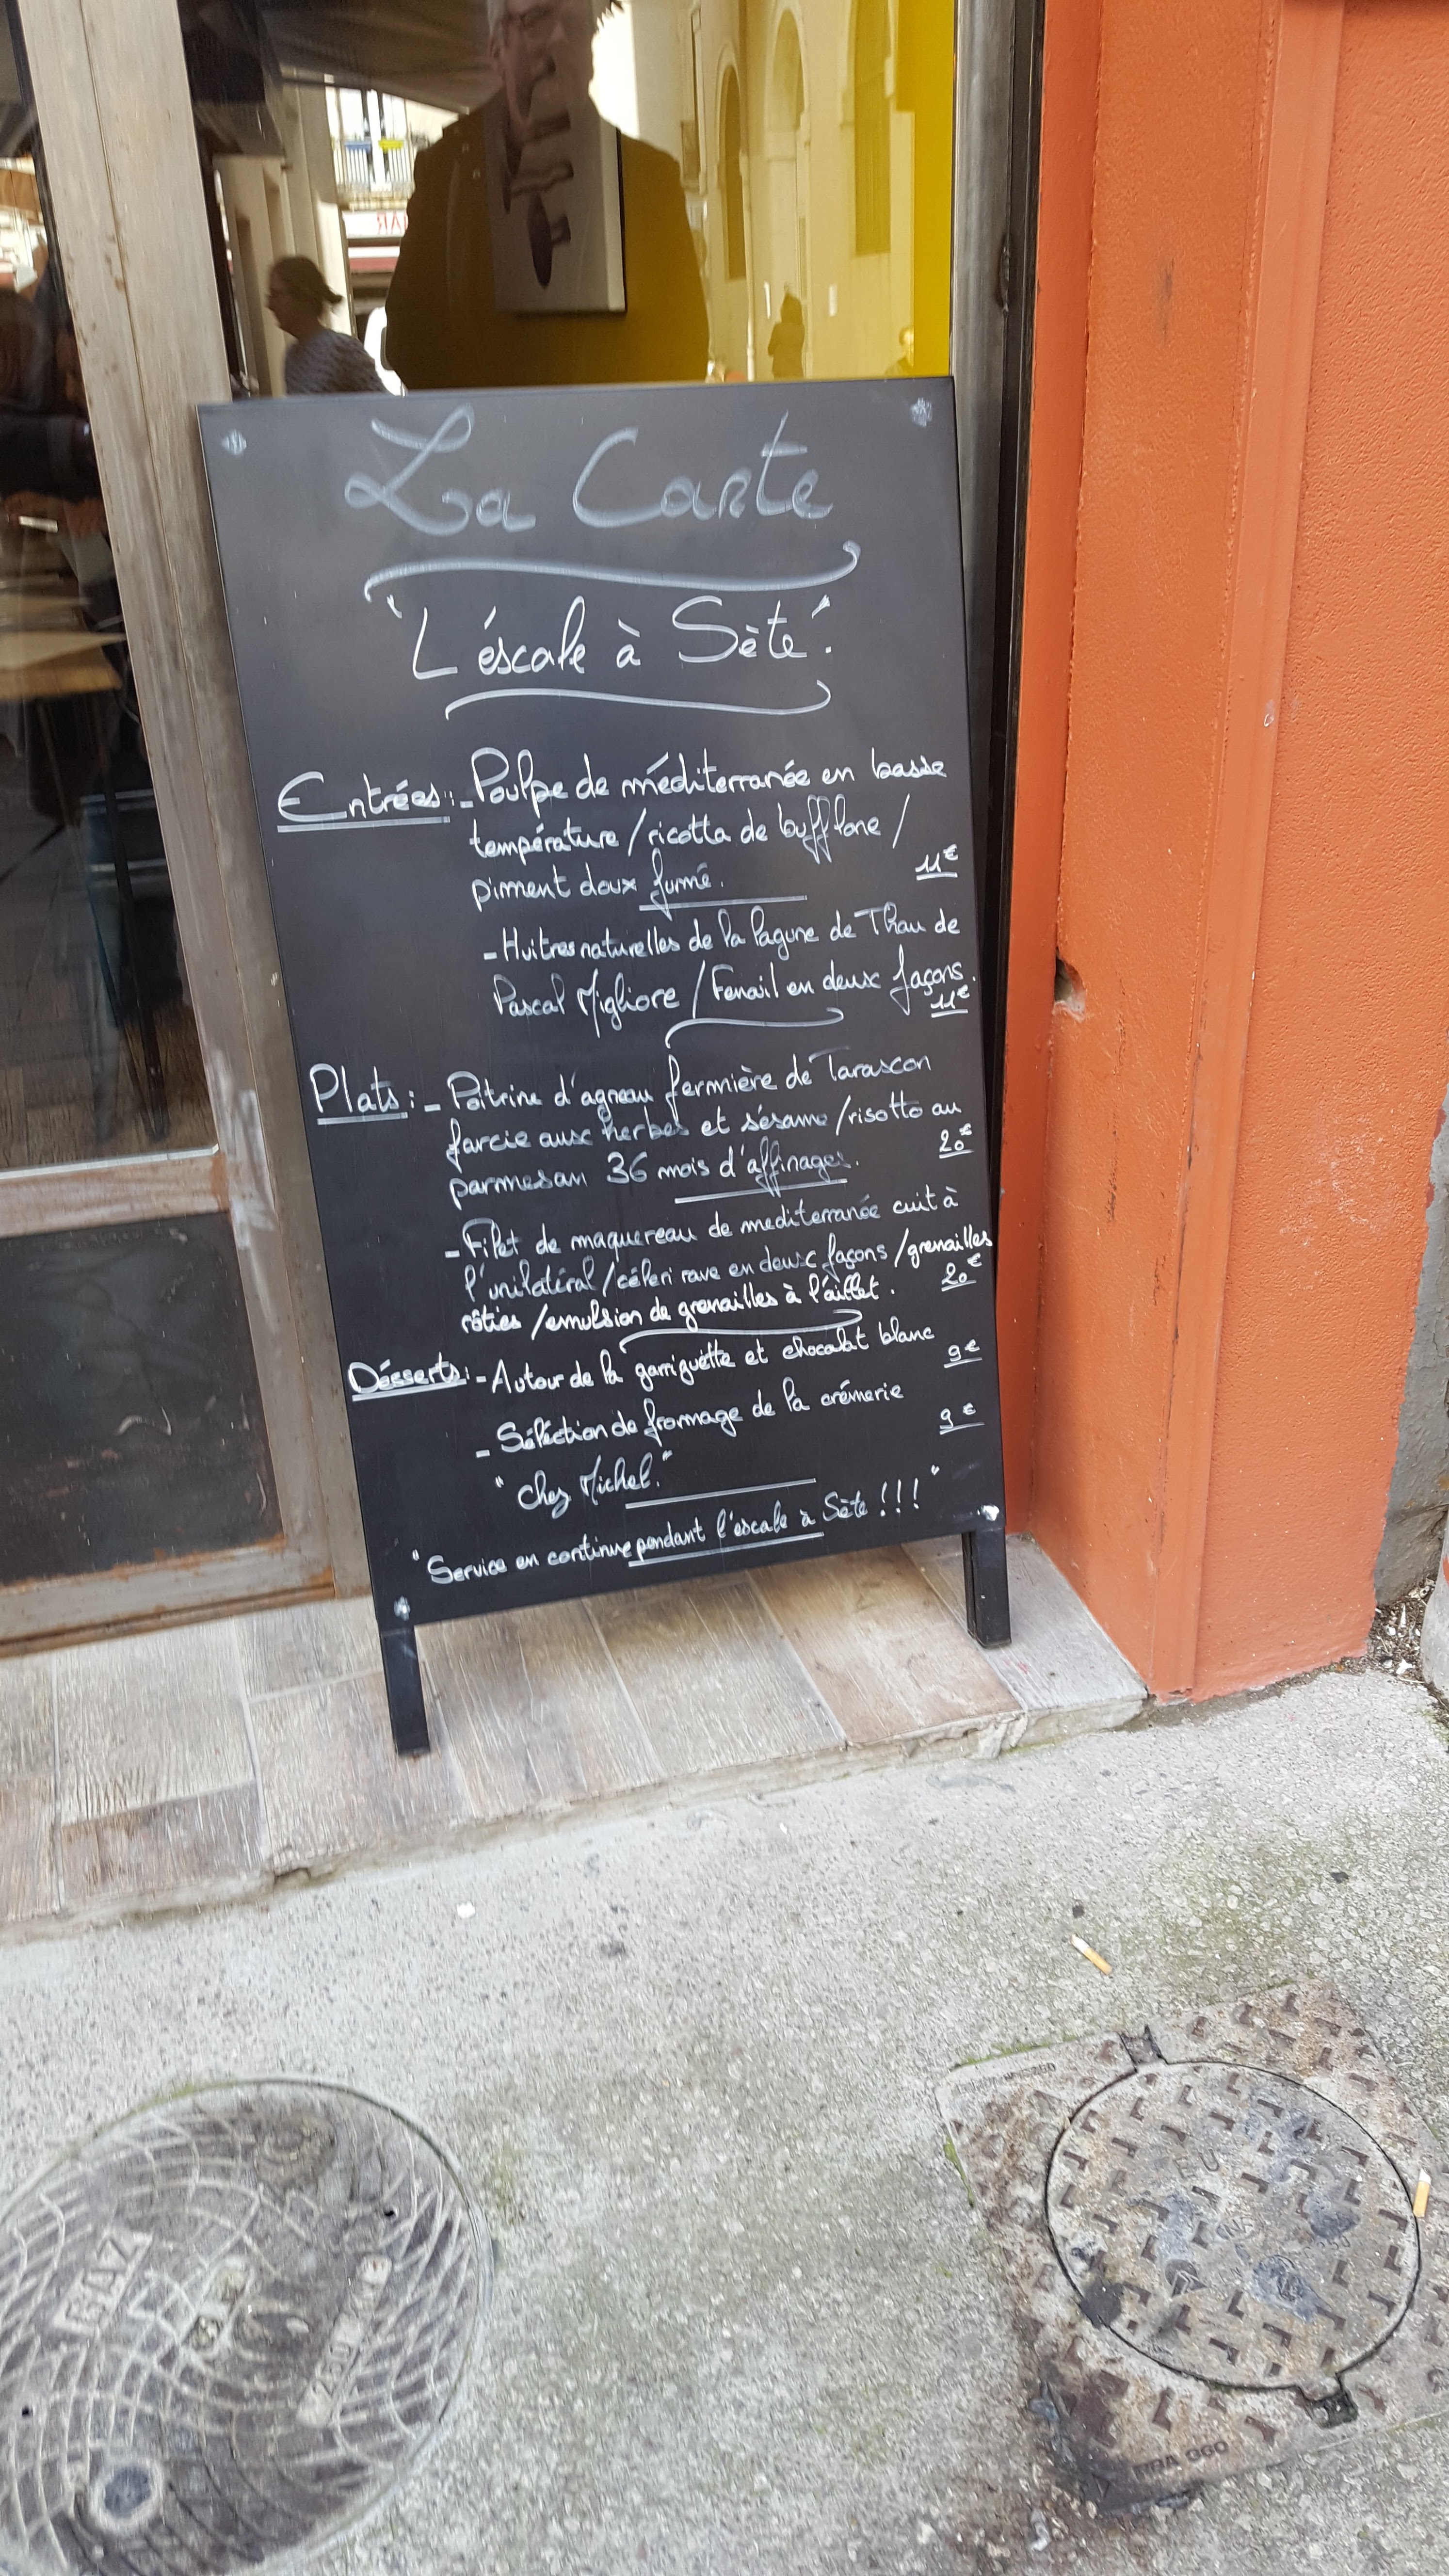 La Carte
"L'éscale à Sète".
Entrées: - Poulpe de méditerranée en basse
température / ricotta de bufflone /
piment doux fumé.
11€
- Huitres naturelles de la lagune de Thau de
Pascal Migliore / Fenouil en deux façons.
11€
Plats: - Poitrine d'agneau fermière de Tarascon
farcie aux herbes et sésame / risotto au
parmesan 36 mois d'affinages.
20€
- Filet de maquereau de mediterranée cuit à
l'unilatéral / céleri rave en deux façons / grenailles
rôties / emulsion de grenailles à l'aillet.
20€
Désserts: - Autour de la garriguette et chocolat blanc
9€
- Séléction de fromage de la crémerie
9€
"Chez Michel."
"Service en continue pendant l'escale à Sète !!!"
EU